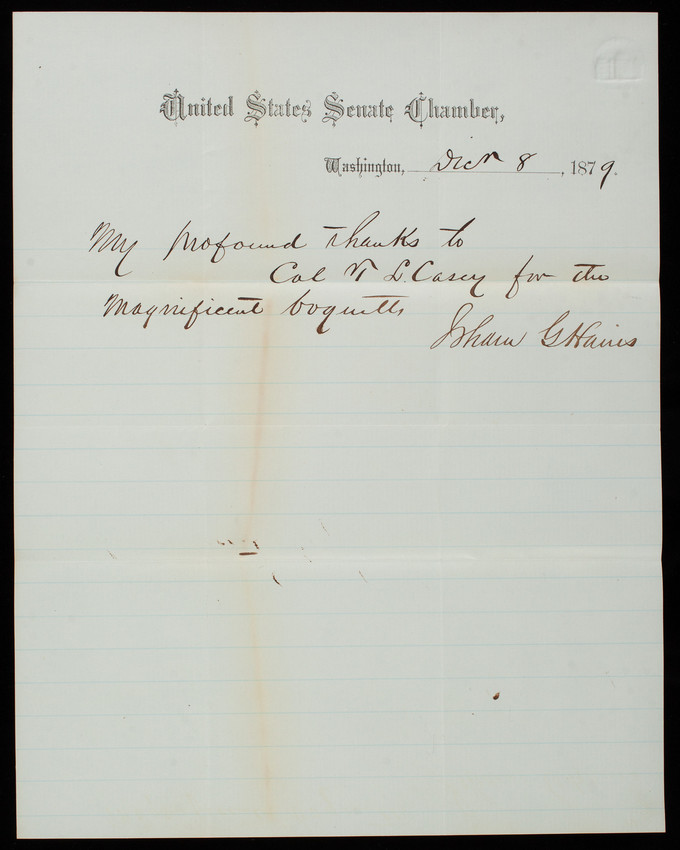 United States Senate Chamber,
Washington, Decr 8, 1879.
My profound thanks to
Col T L. Casey for the
Magnificent boquetts
Isham G Harris